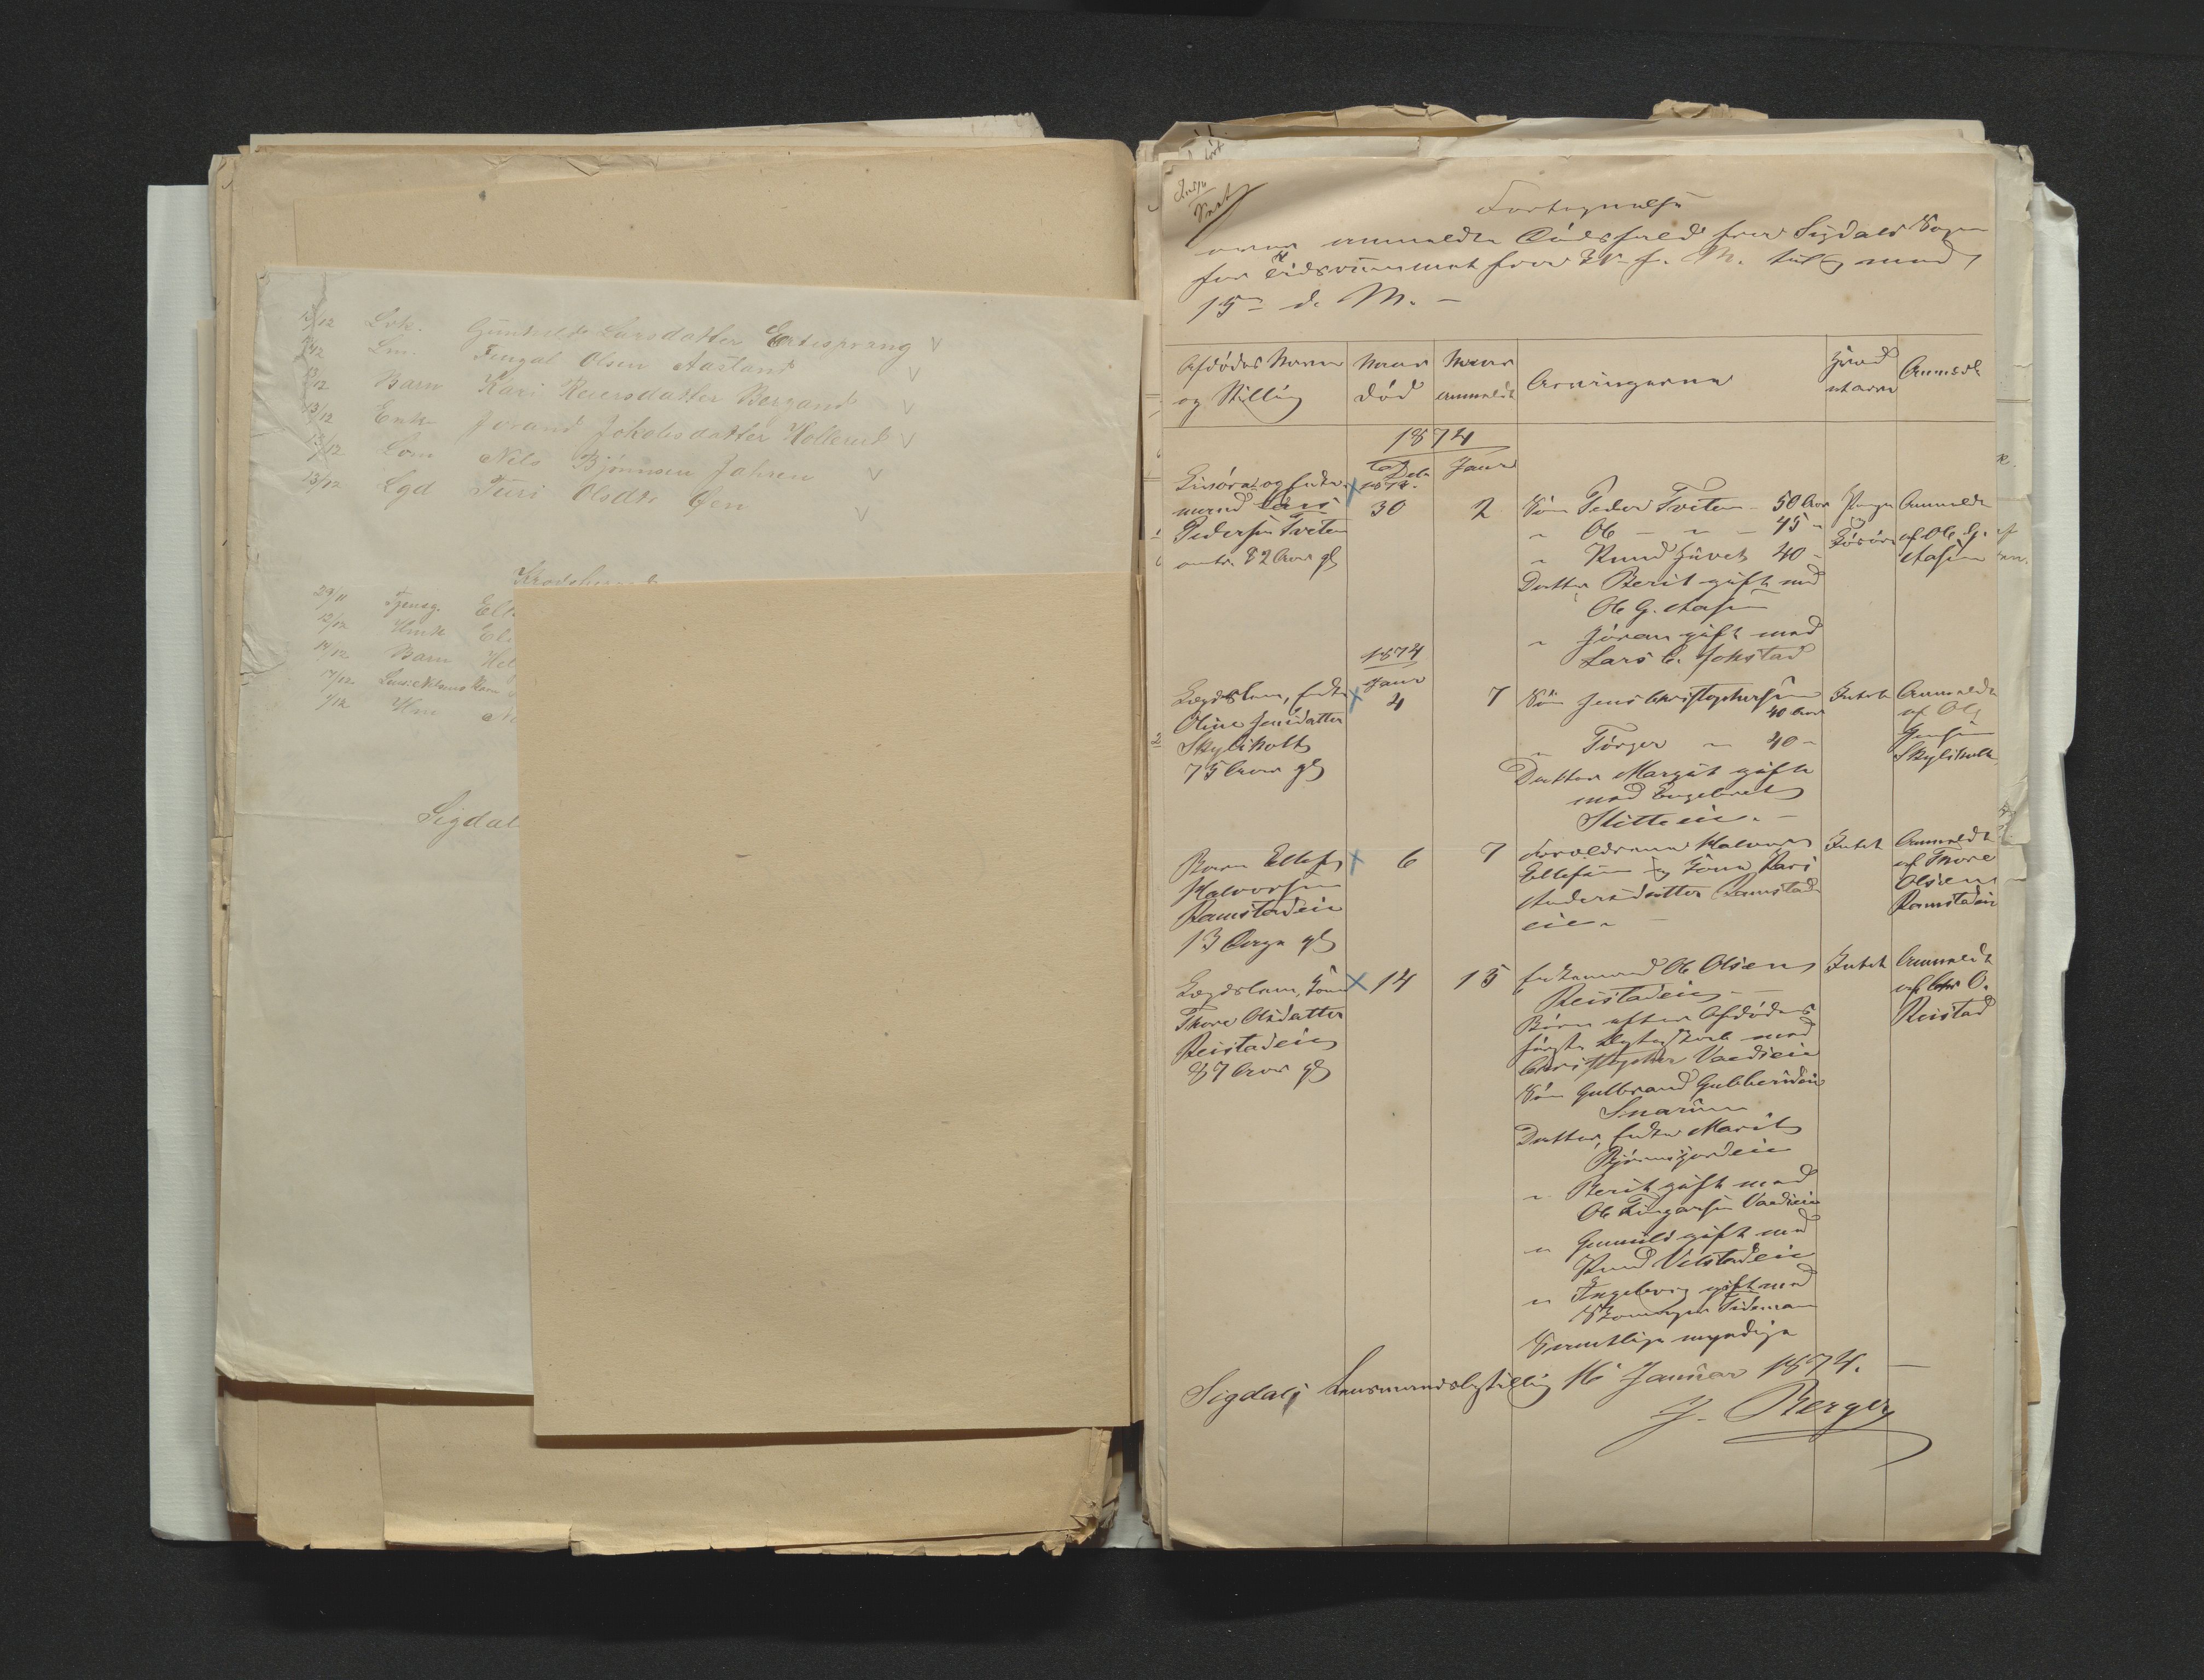 13/12 Lvk. Gunhild Larsdatter Enesprang V
Lm. Fingal Olsen Aasland V
Barn Kari Reiersdatter Bergand V
13/12 Enke Jørand Jokolisdatter Hollerud V
13/12 Lom Nils Bjørnsen Jahren V
13/12 Lgd Turi Olsdtr Gjen V
Krødsherred
29/11 Tjeneg. El
12/12 Hmd Eli
14/12 Barn Hel
14/12
4/12 Hm
Sigdal
Fortegnelse
over anmeldte Dødsfald fra Sigdals Sogn
for Tidsrummet fra f. M. til og med
15de d. M. –
Afdødes Navn og Stilling
Naar død
Naar anmeldt
Arvingerne
Anmeldt
1874
Decbr 1873.
Januar
Inderst og Enkemand Lars
Pedersen Tveten
omtr. 82 Aar gl
30
2
Søn Peder Tveten – 50 Aar
" Ole – " – 45 "
" Knud Juvet 40 –
Datter Berit gift med
Ole G. Aasen
" Jøran gift med
Lars C. Jokstad
Penge og Løsøre
Anmeldt
af Ole G.
Aasen
1874
Januar
2
Lægdslem, Enke
Oline Jensdatter
Skylsholt
75 Aar gl
4
7
Søn Jens Christophersen
40 Aar
" Torger – " 40 –
Datter Margit gift
med Engebret
Slitteeie. –
Intet
Anmeldt
af Ole
Jensen
Skylsholt
Barn Ellef
Halvorsen
Ramstadeie
13 Dage gl
6
7
Forældrene Halvor
Ellefsen og Kone Kari
Andersdatter Ramstad
eie. –
Intet
Anmeldt
af Thore
Olsen
Ramstadeie
Lægdslem, Kone
Thore Olsdatter
Reistadeie
87 Aar gl
14
15
Enkemand Ole Olsen
Reistadeie –
Børn efter Afdødes
første Ægteskab med
Christopher Vadseie
Søn Gulbrand Gubberudeie
Snarum
Datter, Enke Marit
Bjørnsgardeie
" Berit gift med
Ole Fingarsen Vadseie
" Gunnild gift med
Knud Velstadeie
" Ingeborg gift med
Skomager Tideman
Samtlige myndige
Intet
Anmeldt
af Chr O.
Reistad
Sigdals Lensmandsbestilling 16 Januar 1874. –
J. Berger